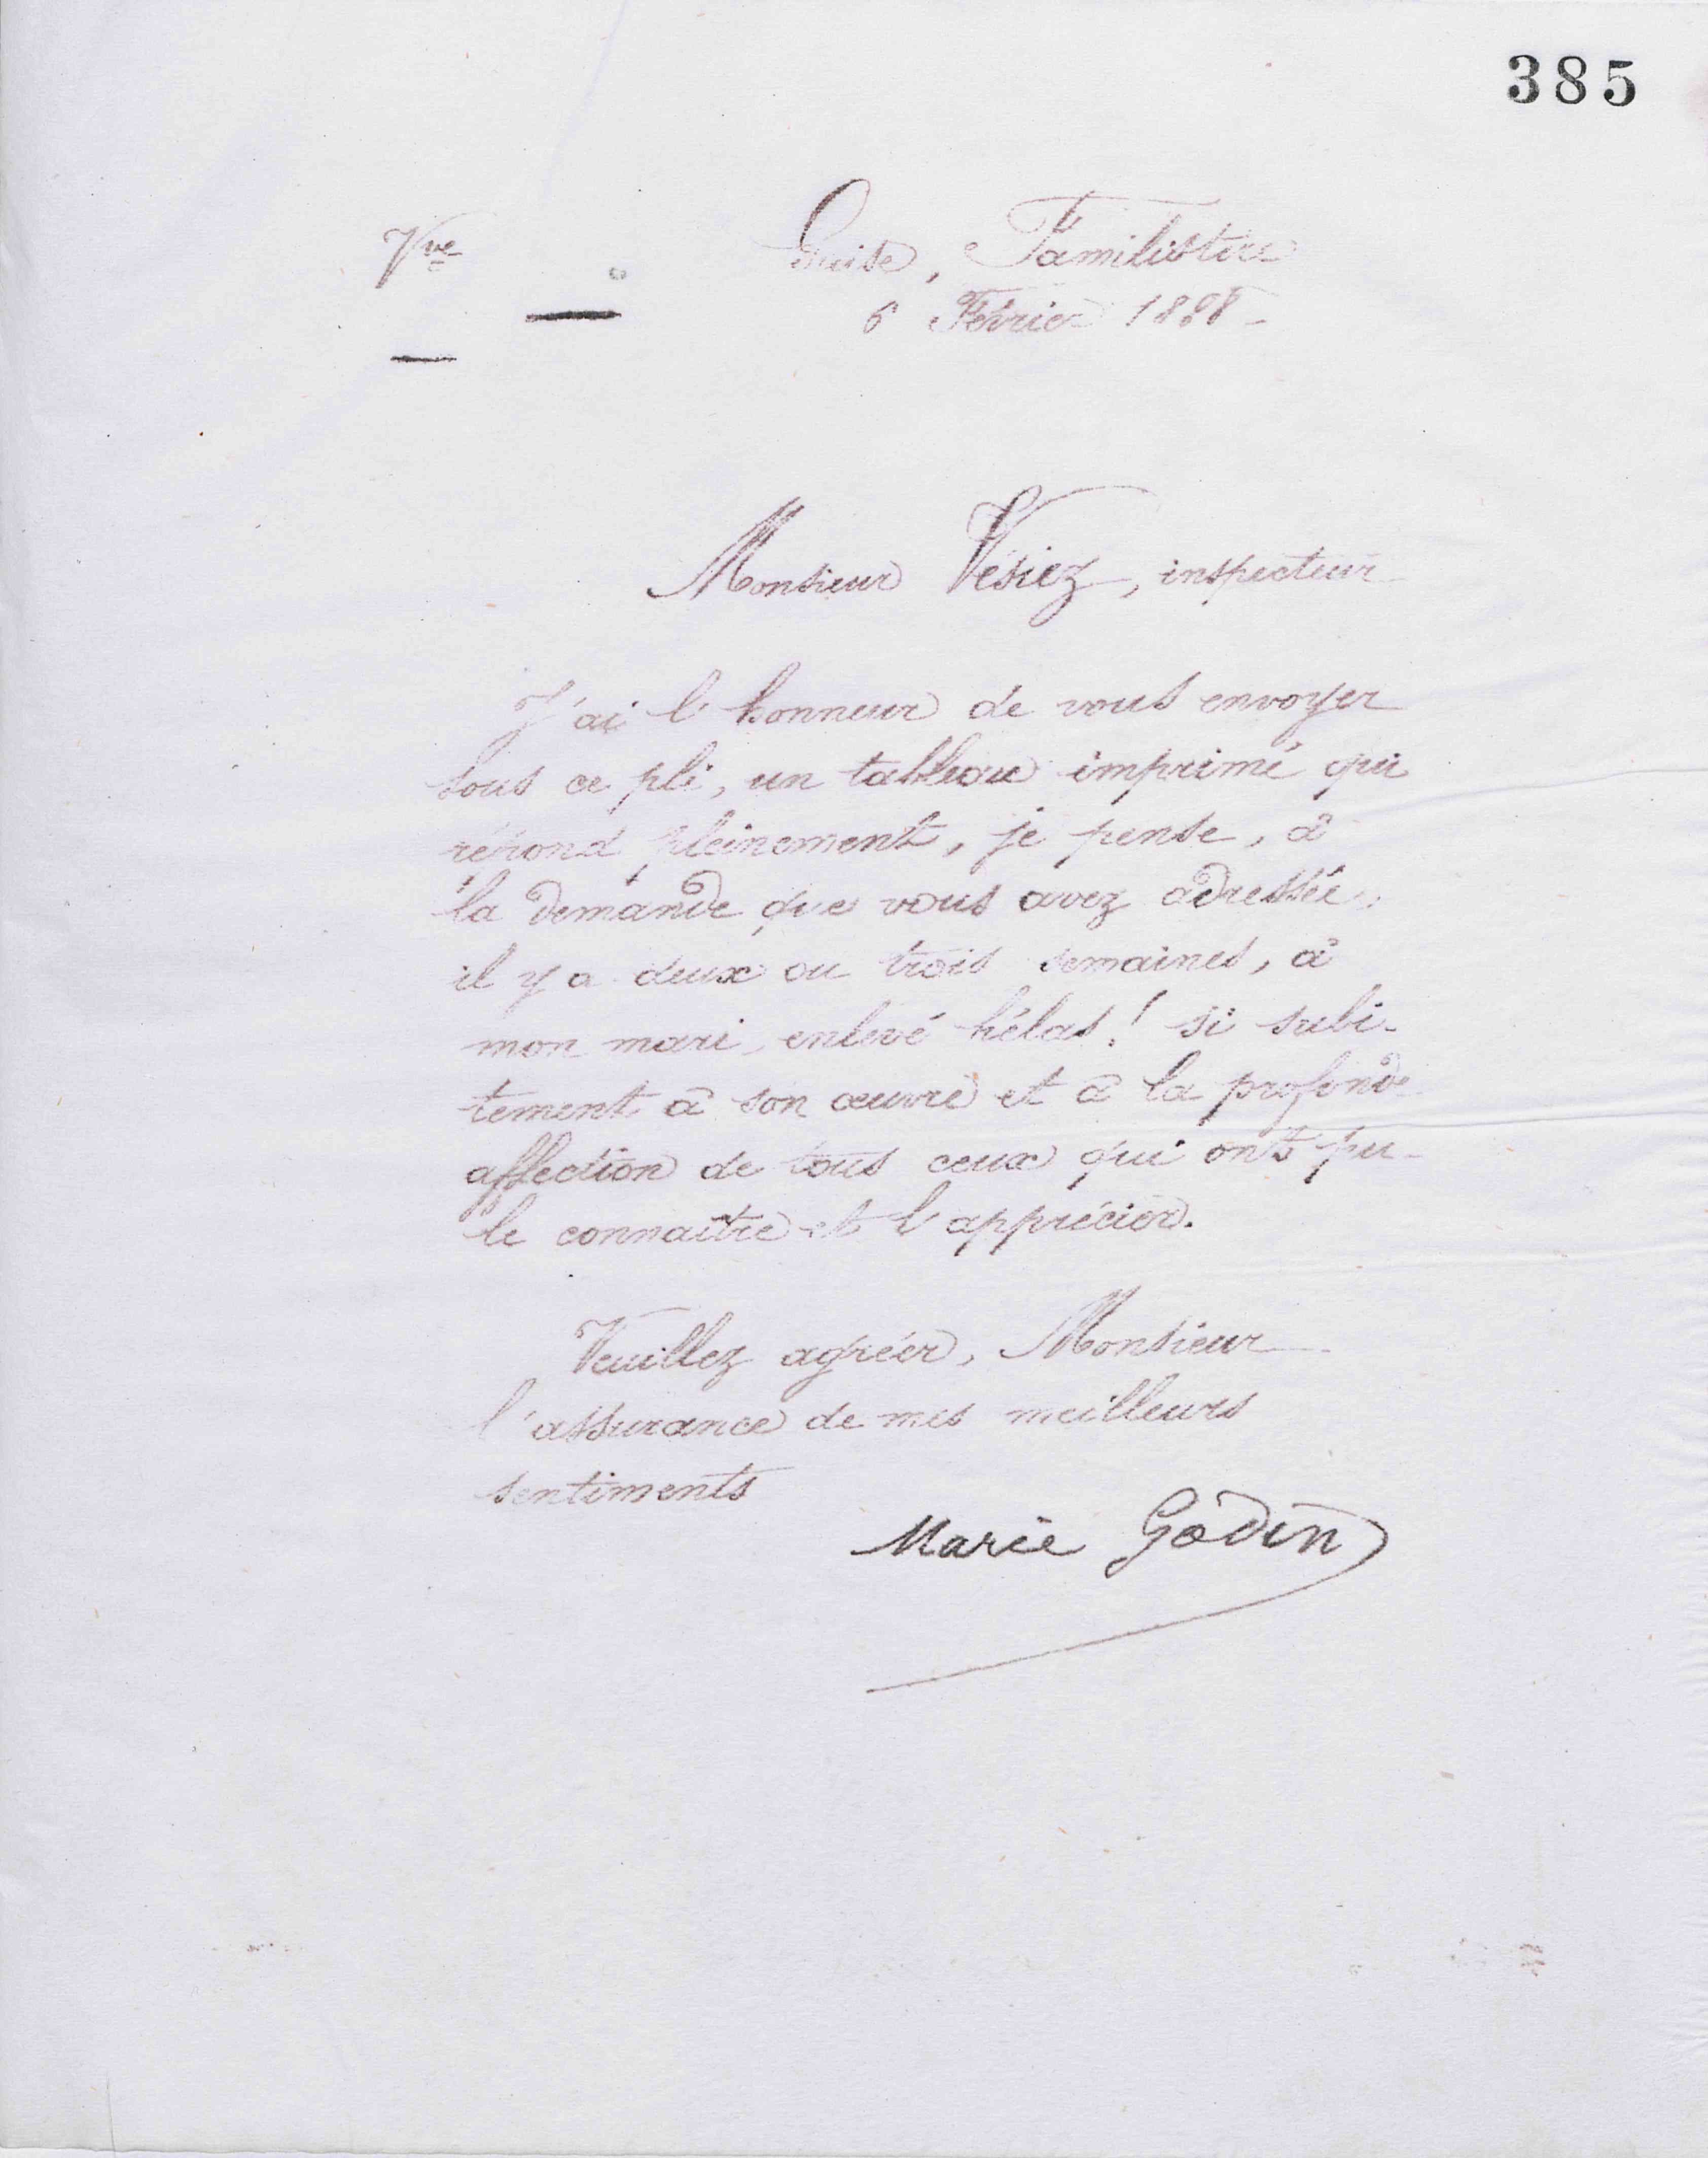 385
Vve
Guise, Familistère
6 Février 1888
Monsieur Vésiez, inspecteur
J'ai l'honneur de vous envoyer
sous ce pli, un tableau imprimé qui
répond pleinement, je pense, à
la demande que vous avez adressée,
il y a deux ou trois semaines, à
mon mari, enlevé hélas! si subi-
tement à son œuvre et à la profonde
affection de tous ceux qui ont pu
le connaître et l'apprécier.
Veuillez agréer, Monsieur
l'assurance de mes meilleurs
sentiments
Marie Godin